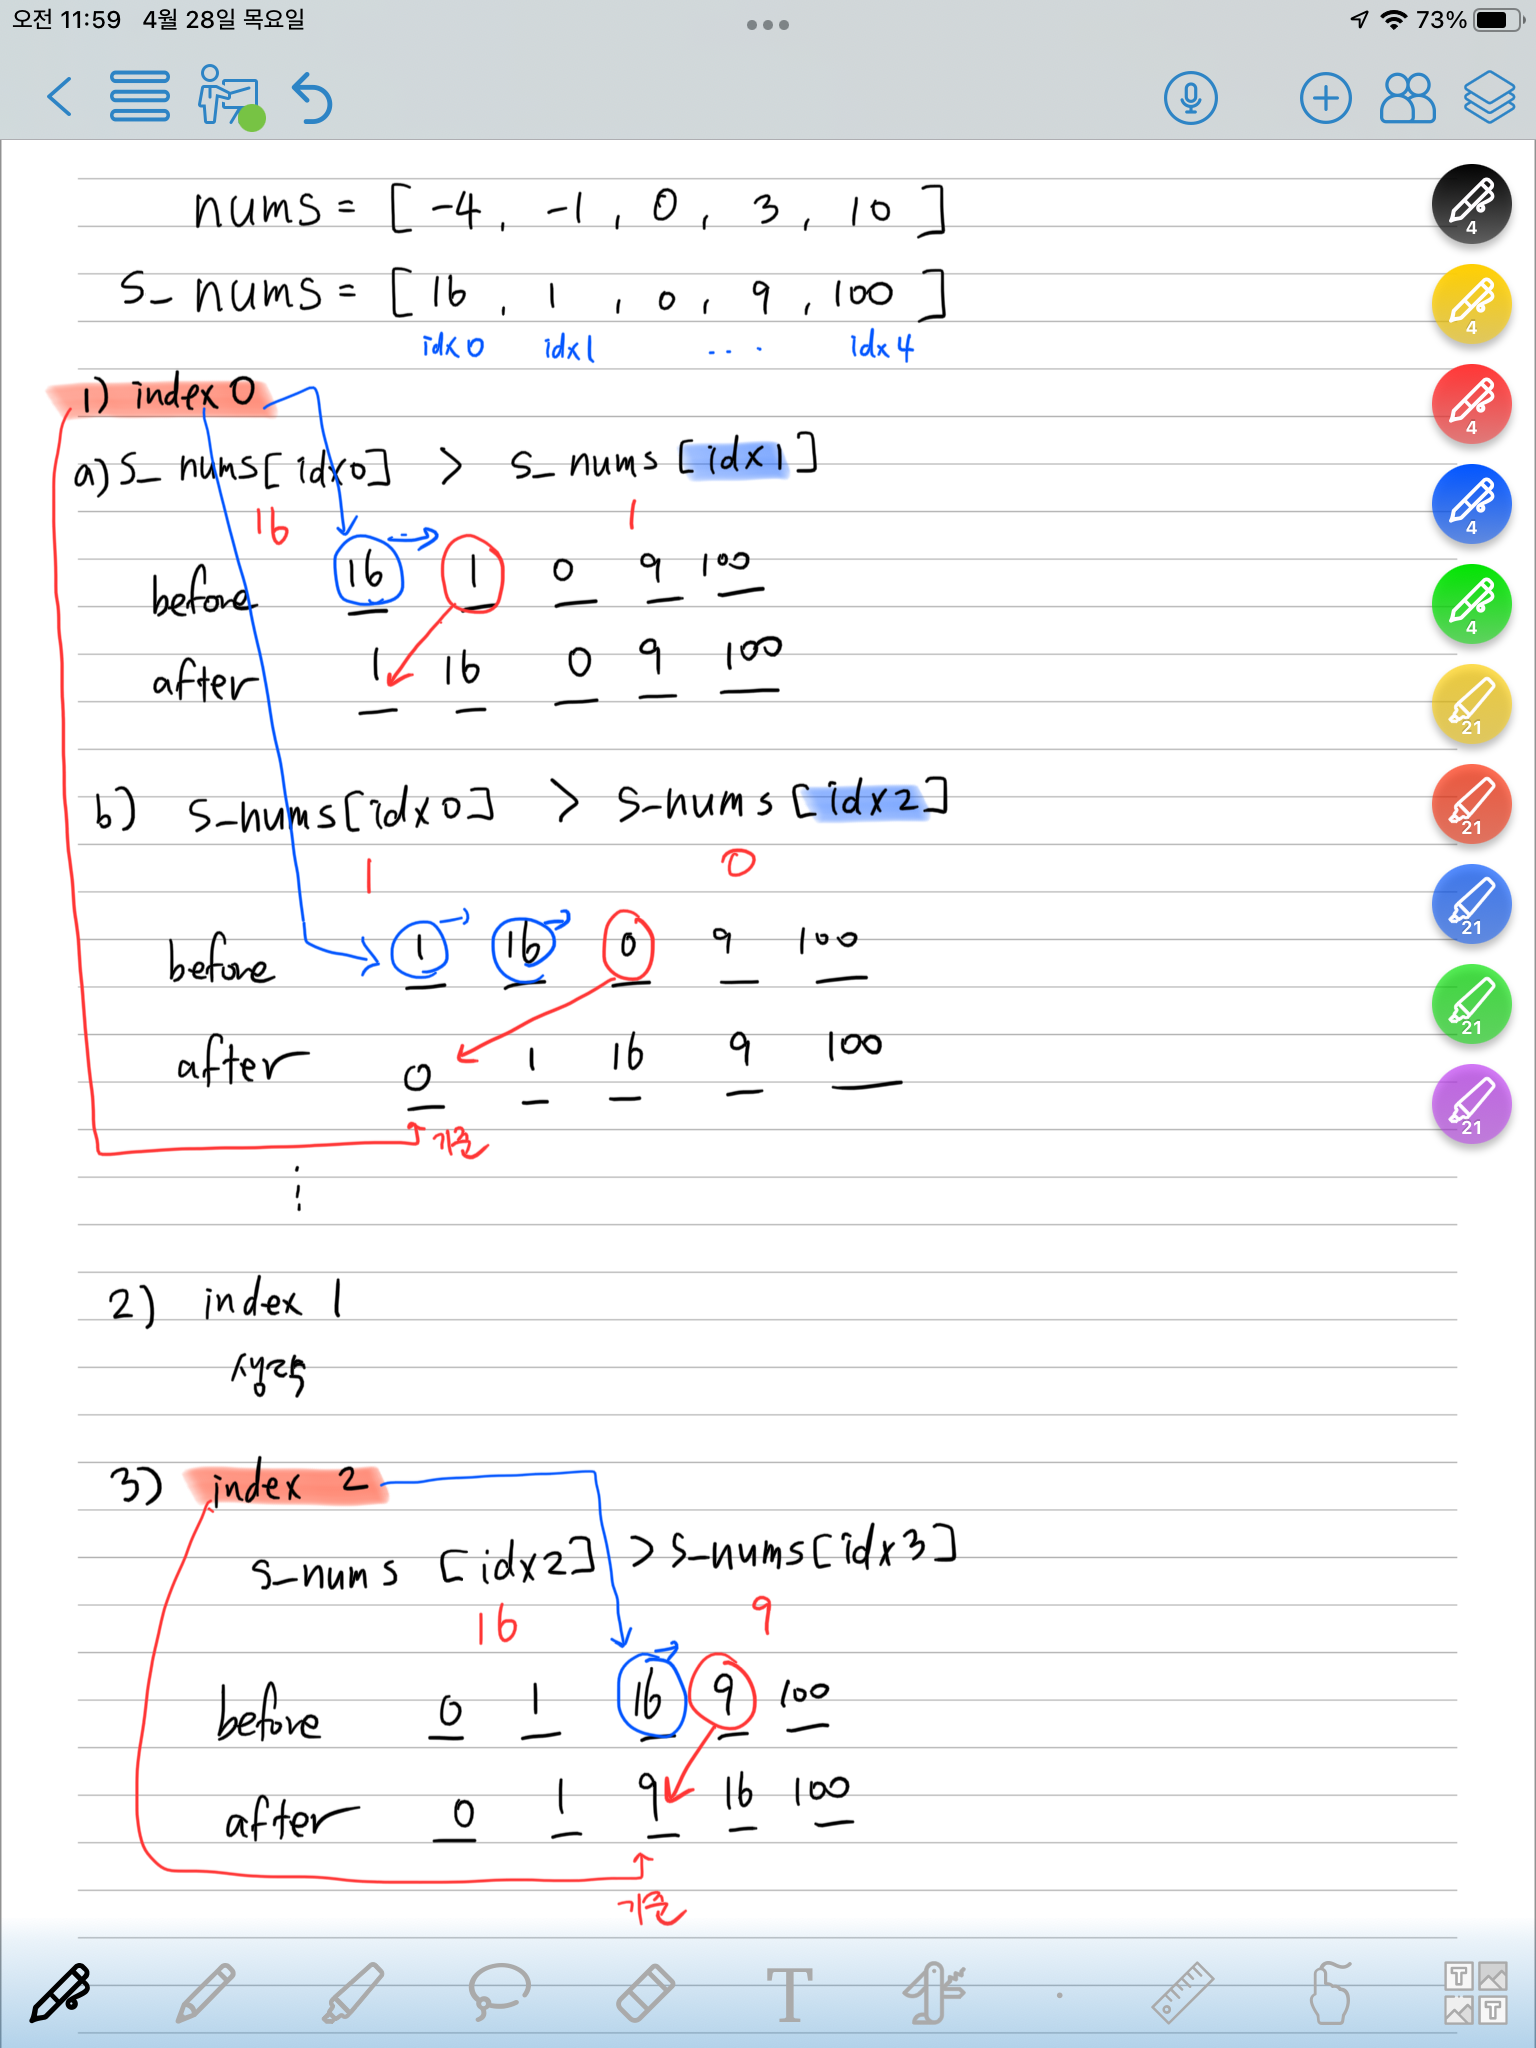 오전 11:59 4월 28일 목요일 73%
nums = [ -4 , -1 , 0 , 3 , 10 ]
S_ nums = [ 16 , 1 , 0 , 9 , 100 ]
idx0 idx1 ... idx4
1) index 0
a) S_ nums[ idx0 ] > S_ nums [ idx1 ]
16 1
before 16 1 0 9 100
after 1 16 0 9 100
b) S_nums[ idx0 ] > S_nums [ idx2 ]
1 0
before 1 16 0 9 100
after 0 1 16 9 100
기준
2) index 1
생략
3) index 2
S_nums [ idx2 ] > S_nums [ idx3 ]
16 9
before 0 1 16 9 100
after 0 1 9 16 100
기준
4
4
4
4
4
21
21
21
21
21
T
T
T